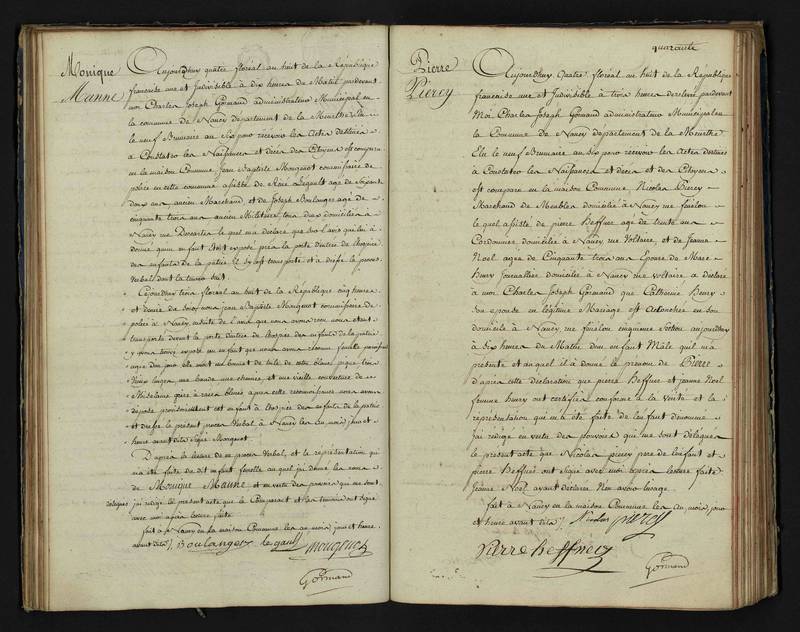 Monique
Manne
Aujourdhuy quatre floréal an huit de la République
francaise une et Indivisible à dix heures du Matin pardevant
moi Charles Joseph Gormand administrateur Municipal en
la commune de Nancy departement de la Meurthe Elu
le neuf Brumaire an Six pour recevoir les Actes destinés
a Constater les Naissances et décès des Citoyens est comparu
en la maison Commune Jean Baptiste Mougenot commissaire de
police en cette commune assisté de René Legault age de soixante
deux ans ancien Marchand et de Joseph Boulanger agé de
cinquante trois ans ancien Militaire tous deux domiciliés a
Nancy rue le quel m'a declaré que sur l'avis que lui a
donné qu'un enfant étoit exposé près la porte d'entrée de l'hospice
des enfants de la patrie il s'y est transporté et a dressé le procès
verbal dont la teneur suit.
Cejourdhuy trois floréal an huit de la République cinq heures
et demie du soir nous jean Baptiste Mougenot commissaire de
police à Nancy ensuite de l'avis que nous avons recu nous etant
transporté devant la porte d'entrée de l'hospice des enfants de la patrie
y avons trouvé exposé un enfant que nous avons reconnu femelle paroissant
agée d'un jour elle avoit un bonnet de toile de coton blanc piqué trois
vieux langes une bande une chemise, et une vieille couverture de
laine après cette reconnoissance nous avons
déposé provisoirement cet enfant à l'hospice des enfants de la patrie
et dressé le présent procès verbal à Nancy les an mois jour et
heure avant dits signé Mougenot.
D'après la lecture de ce procès verbal, et la représentation qui
m'a été faite du dit enfant femelle au quel j'ai donné les noms
de Monique Manne et en vertu des pouvoirs qui me sont
délégués j'ai rédigé le présent acte que le Comparant et les temoins ont signé
avec moi après lecture faite
fait à Nancy en la maison Commune les an mois jour et heure
avant dits /. Boulanger le gault mougenot
Gormand
quarante
Pierre
Piercy
Aujourdhuy Quatre floréal an huit de la République
francaise une et Indivisible à trois heures de relevé pardevant
Moi Charles Joseph Gormand administrateur Municipal en
la Commune de Nancy departement de la Meurthe
Elu le neuf Brumaire an six pour recevoir les Actes destinés
à Constater les Naissances et décès et des Citoyens
est comparu en la maison Commune Nicolas Piercy
Marchand de Meubles domicilié à Nancy rue
le quel assisté de pierre Heffner agé de trente ans
Cordonnier domicilié à Nancy rue Voltaire, et de Jeanne
Noel agée de Cinquante trois ans Epouse de Marc
Henry journallier domicilié à Nancy rue voltaire a déclaré
à moi Charles Joseph Gormand que Catherine Henry
son epouse en légitime Mariage est accouchée en son
domicile à Nancy rue cinquieme section aujourdhuy
à Six heures du Matin d'un enfant Mâle qu'il m'a
présenté et au quel il a donné le prénom de Pierre
d'après cette déclaration que pierre Heffner et jeanne Noel
femme henry ont certifiée conforme à la verité et la
représentation qui m'a été faite de l'enfant dénommé
j'ai rédigé en vertu des pouvoirs qui me sont délégués
le présent acte que Nicolas piercy père de l'enfant et
pierre Heffner ont signé avec moi après lecture faite
Jeanne Noël ayant déclaré n'en avoir l'usage
fait à Nancy en la maison Commune les an mois, jour
et heure avant dits /. Nicolas piercy
Pierre heffner
Gormand